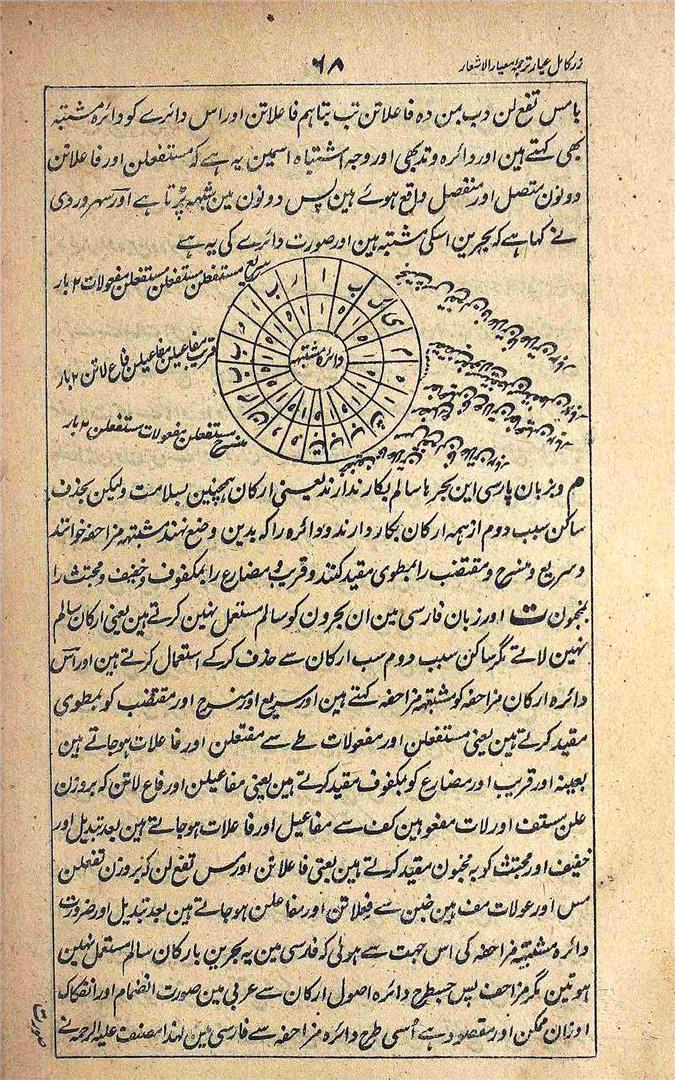 زرکامل عیار ترجمۂ معیار الاشعار
۶۸
یا مس تفع لن دب بن ده فاعلاتن تب بتاہم فاعلاتن اور اس دائرے کو دائرہ مشتبہ
بھی کہتے ہین اور دائرہ وتد بھی اور وجہ اشتباہ اسمین یہ ہے کہ مستفعلن اور فاعلاتن
دونون متصل اور منفصل واقع ہوئے ہین پس دونون مین شبہہ پڑتا ہے اور سہروردی
نے کہا ہے کہ بحرین اسکی مشتبہ ہین اور صورت دائرے کی یہ ہے
سریع مستفعلن مستفعلن مفعولات ۲ بار
قریب مفاعیلن مفاعیلن فاع لاتن ۲ بار
منسرح مستفعلن مفعولات مستفعلن ۲ بار
دائرہ مشتبہ
م و بزبان پارسی این بحرہا سالم بکار ندارند یعنی ارکان ہمچنین بسلامت ولیکن بحذف
ساکن سبب دوم از ہمہ ارکان بکار دارند و دائرہ را کہ بدین وضع نہند مشتبہہ مزاحفہ خوانند
و سریع و منسرح و مقتضب را بمطوی مقید کنند و قریب و مضارع را بمکفوف و خفیف و مجتث را
بمخبون ت اور زبان فارسی مین ان بحرون کو سالم مستعمل نہین کرتے ہین یعنی ارکان سالم
نہین لاتے مگر ساکن سبب دوم سب ارکان سے حذف کرکے استعمال کرتے ہین اور اس
دائرہ ارکان مزاحفہ کو مشتبہہ مزاحفہ کہتے ہین اور سریع اور منسرح اور مقتضب کو بمطوی
مقید کرتے ہین یعنی مستفعلن اور مفعولات طے سے مفتعلن اور فاعلات ہوجاتے ہین
بعینہ اور قریب اور مضارع کو بمکفوف مقید کرتے ہین یعنی مفاعیلن اور فاع لاتن کہ بروزن
علن مستف اور لات مفعو ہین کف سے مفاعیل اور فاعلات ہوجاتے ہین بعد تبدیل اور
خفیف اور مجتث کو بہ مخبون مقید کرتے ہین یعنی فاعلاتن اور مس تفع لن کہ بروزن تفعلن
مس اور عولات مف ہین خبن سے فعلاتن اور مفاعلن ہوجاتے ہین بعد تبدیل اور ضرورت
دائرہ مشتبہہ مزاحفہ کی اس جہت سے ہوئی کہ فارسی مین یہ بحرین بارکان سالم مستعمل نہین
ہوتین مگر مزاحف پس جسطرح دائرہ اصول ارکان سے عربی مین صورت انضمام اور انفکاک
اوزان ممکن اور مقصود ہے اُسی طرح دائرہ مزاحفہ سے فارسی مین لہذا مصنف علیہ الرحمہ نے
صورت